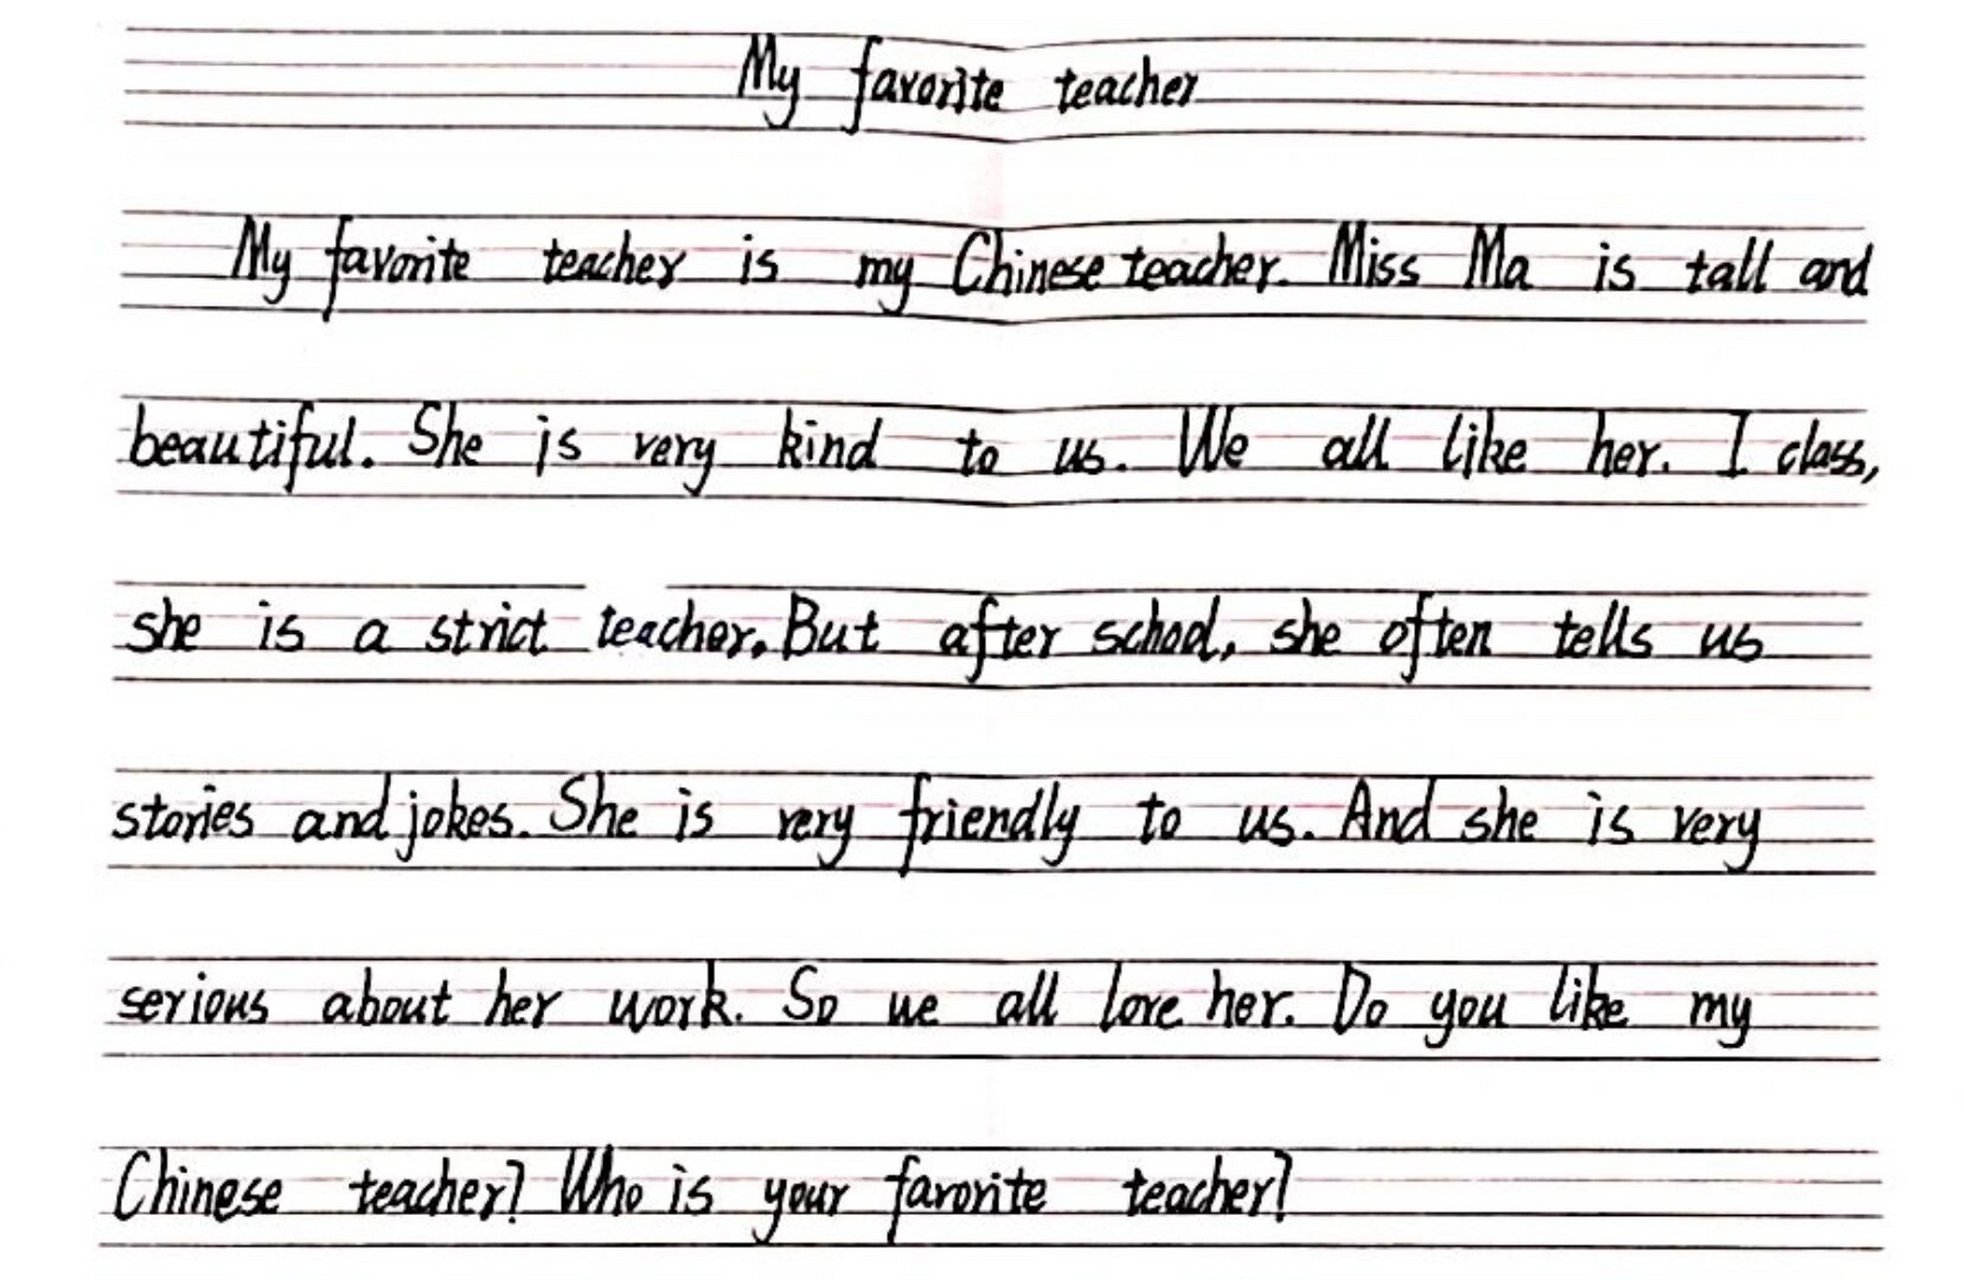 My favorite teacher
My favorite teacher is my Chinese teacher. Miss Ma is tall and
beautiful. She is very kind to us. We all like her. I class,
she is a strict teacher. But after school, she often tells us
stories and jokes. She is very friendly to us. And she is very
serious about her work. So we all love her. Do you like my
Chinese teacher? Who is your favorite teacher?